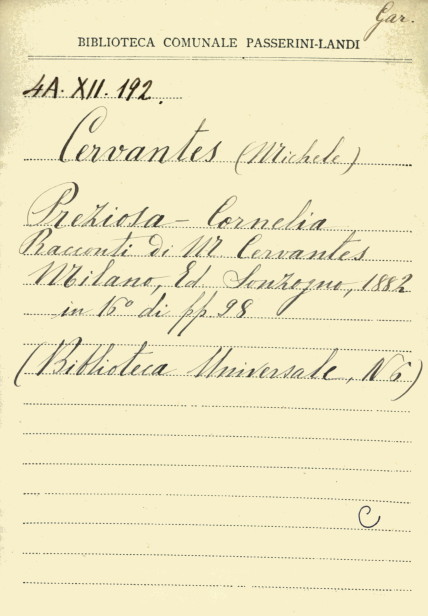 Gar.
BIBLIOTECA COMUNALE PASSERINI-LANDI
4A. XII. 192.
Cervantes (Michele)
Preziosa - Cornelia
Racconti di M Cervantes
Milano, Ed Sonzogno, 1882
in 16° di pp 98
(Biblioteca Universale, N 6)
C